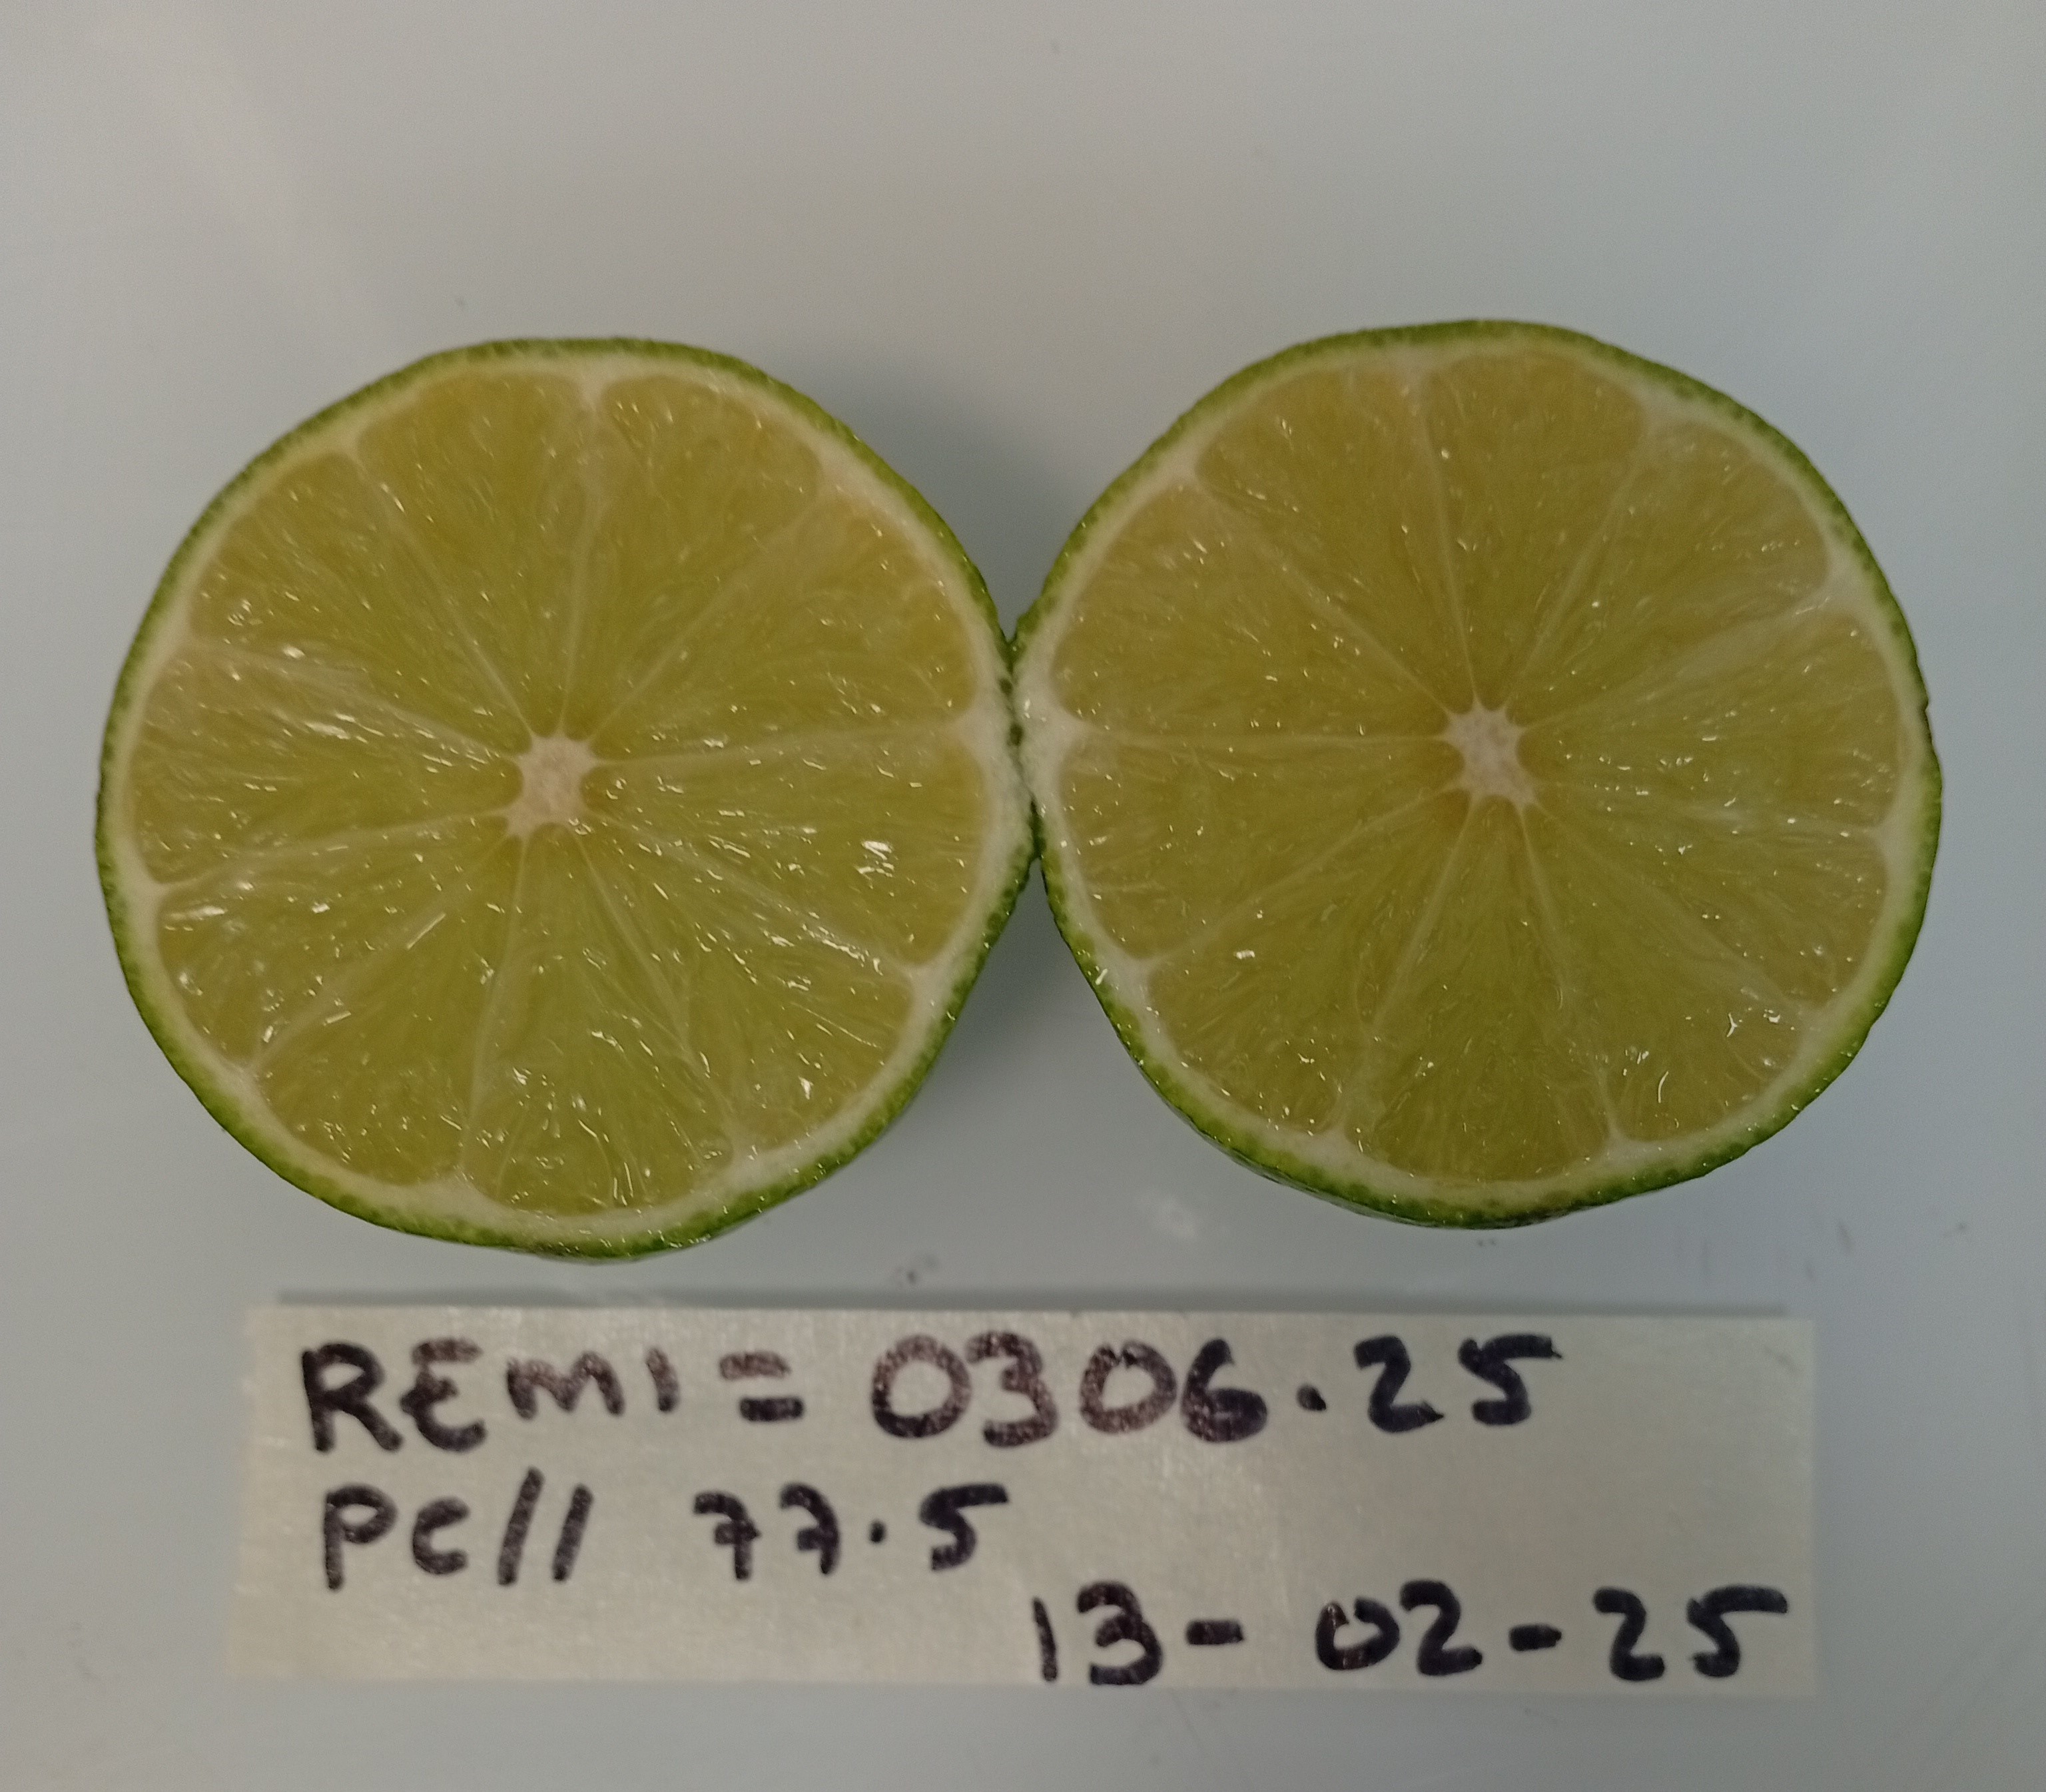 REMI = 0306.25
PC// 77.5
13-02-25